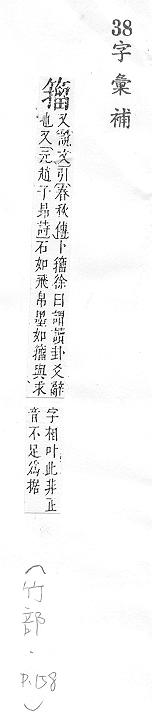 38字彙補
籕又說文引春秋傳卜籕徐曰謂讀卦爻辭
也又元趙子昂詩石如飛帛墨如籕與求
字相叶此非正
音不足爲據
(竹部.P.158)